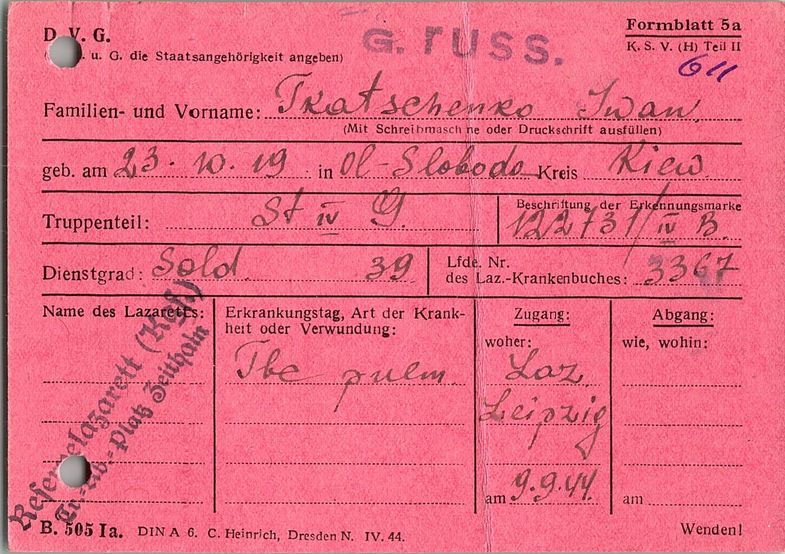 D. V. G.
G. russ.
Formblatt 5a
u. G. die Staatsangehörigkeit angeben)
K. S. V. (H) Teil II
611
Familien- und Vorname: Tkatschenko Iwan
(Mit Schreibmaschine oder Druckschrift ausfüllen)
geb. am 23. 10. 19 in Ol-Slobodo Kreis Kiew
Truppenteil: St IV G.
Beschriftung der Erkennungsmarke
122731/IV B.
Dienstgrad: Sold. 39
Lfde. Nr.
des Laz.-Krankenbuches: 3367
Name des Lazaretts:
Reservelazarett (Kgf.)
Tr.-Üb.-Platz Zeithain
Erkrankungstag, Art der Krank-
heit oder Verwundung:
Tbc pulm.
Zugang:
woher:
Laz
Leipzig
am 9.9.44.
Abgang:
wie, wohin:
am
B. 505 Ia. DIN A 6. C. Heinrich, Dresden N. IV. 44.
Wenden!